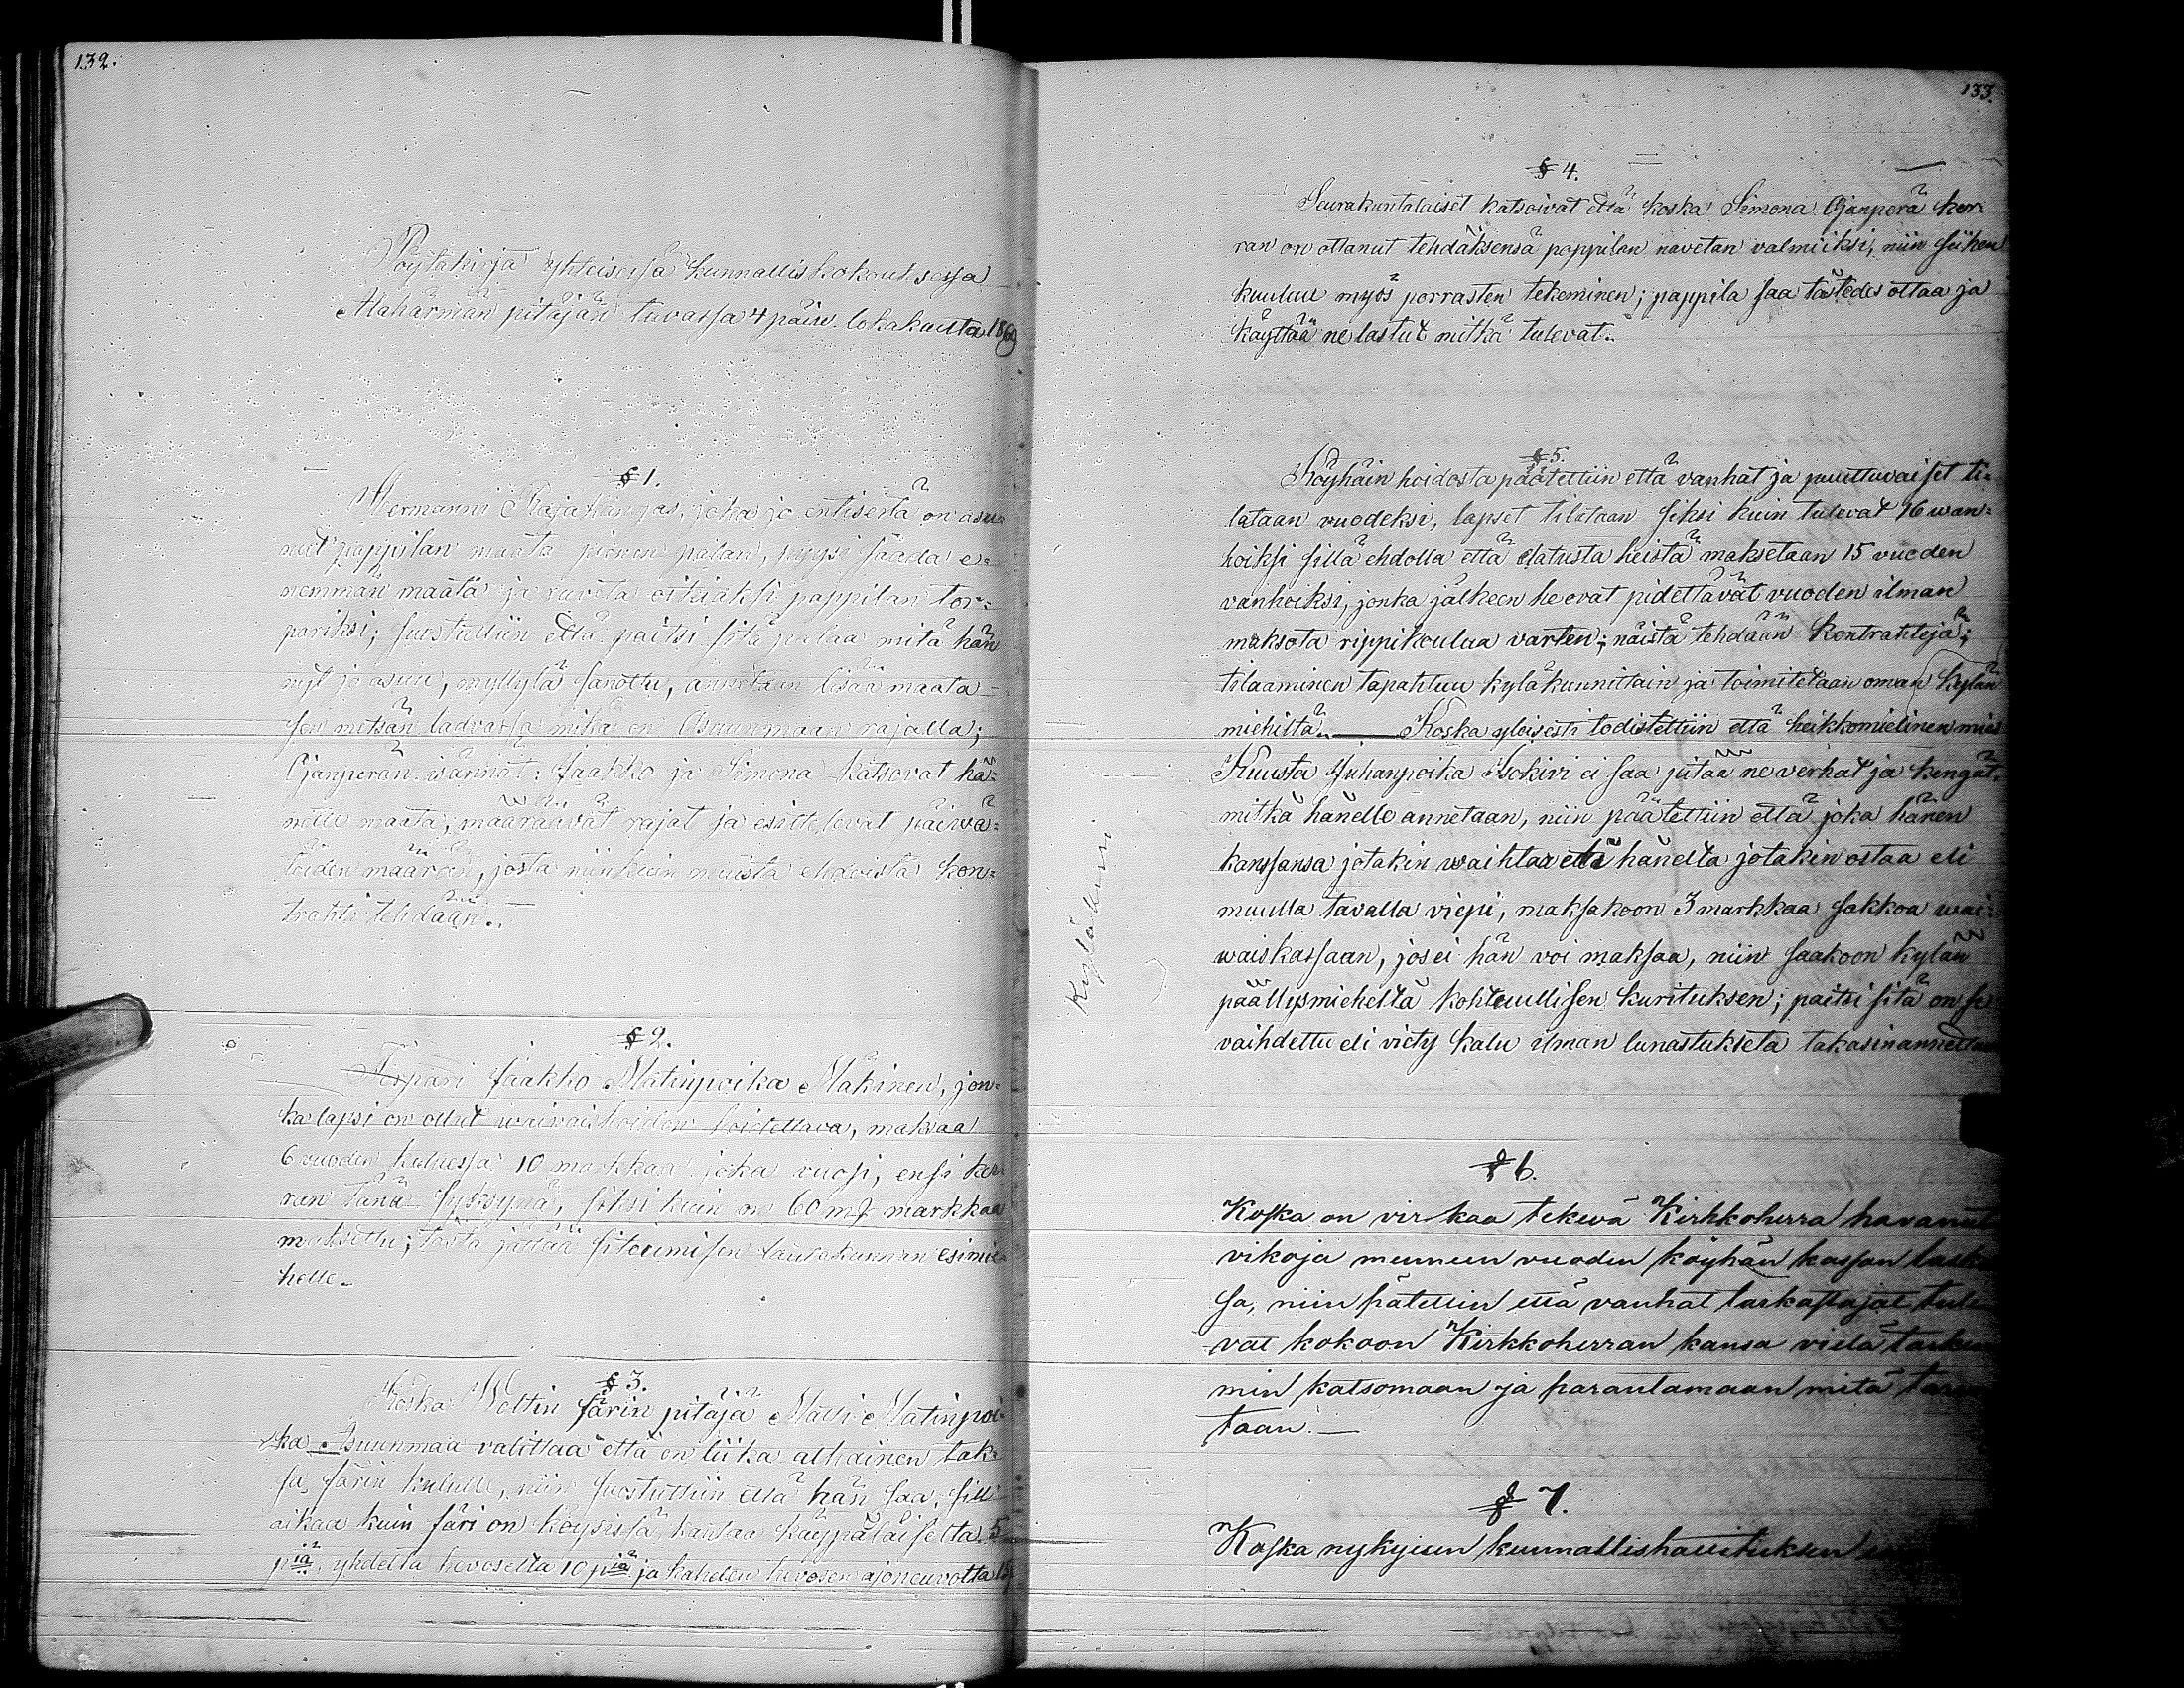 132.
Pöytäkirja yhteisessä kunnalliskokouksessa
Alahärmän pitäjän tuvassa 4 päiv. lokakuuta 1869
§ 1.
Hermanni Rajakangas, joka jo entisestä on asu-
nut pappilan maata pienen palan, pyysi saada e-
nemmän maata ja ruveta oikiaksi pappilan tor-
pariksi; suostuttiin että paitsi sitä palaa mitä hän
nyt jo asuu, myllyltä sanottu, annetaan lisää maata
sen metsän ladvassa mikä on Asuunmaan rajalla;
Ojanperän isännät: Jaakko ja Simona katsovat hä-
nelle maata, määräävät rajat ja esittelevät päivä-
töiden määrän, josta niinkuin muista ehdoista kon-
trahti tehdään.
§ 2.
Torpari Jaakko Matinpoika Mäkinen, jon-
ka lapsi on ollut waiwaishoidon hoidettava, maksaa
6 vuoden kuluessa 10 markkaa joka vuosi, ensi ker-
ran tänä syksynä, siksi kuin on 60 mk markkaa
maksettu; tästä jättää sitoumisen lautakunnan esimie-
helle.
§ 3.
Koska Voltin färin pitäjä Matti Matinpoi-
ka Asuunmaa valittaa että on liika alhainen tak-
sa färin kululle, niin suostuttiin että hän saa, sill
aikaa kuin färi on köysissä kantaa käyppäläiseltä 5
piä. yhdeltä hevoselta 10 piä ja kahden hevosen ajoneuvolta 15
133.
§ 4.
Seurakuntalaiset katsoivat että koska Simona Ojanperä ker-
ran on ottanut tehdäksensä pappilan navetan valmiiksi, niin siihen
kuuluu myös porrasten tekeminen; pappila saa tästedes ottaa ja
käyttää ne lastut mitkä tulevat.
§ 5.
Köyhäin hoidosta päätettiin että vanhat ja puuttuvaiset ti-
lataan vuodeksi, lapset tilataan siksi kuin tulevat 16 wan-
hoiksi sillä ehdolla että elatusta heistä maksetaan 15 vuoden
vanhoiksi, jonka jälkeen he ovat pidettävät vuoden ilman
maksota rippikoulua varten; näistä tehdään kontrahteja;
tilaaminen tapahtuu kyläkunnittain ja toimitetaan oman kylän
miehiltä. Koska yleisesti todistettiin että heikkomielinen mies
Kuusta Juhanpoika Isokivi ei saa pitää ne verhat ja kengät
mitkä hänelle annetaan, niin päätettiin että joka hänen
kanssansa jotakin waihtaa että häneltä jotakin ostaa eli
muulla tavalla viepi, maksakoon 3 markkaa sakkoa wai-
waiskassaan, jos ei hän voi maksaa, niin saakoon kylän
päällysmieheltä kohtuullisen kurituksen; paitsi sitä on se
vaihdettu eli viety kalu ilman lunastukseta takasinannettava
Kyläkunn
§ 6.
Koska on virkaa tekevä Kirkkoherra havannut
vikoja mennen vuoden köyhän kassan lask
sa, niin pätettin että vanhat tarkastajat tule
vat kokoon Kirkkoherran kansa vielä tarkem
min katsomaan ja parantamaan mitä tarvi
taan.
§ 7.
Koska nykyisen kunnallishallituksen